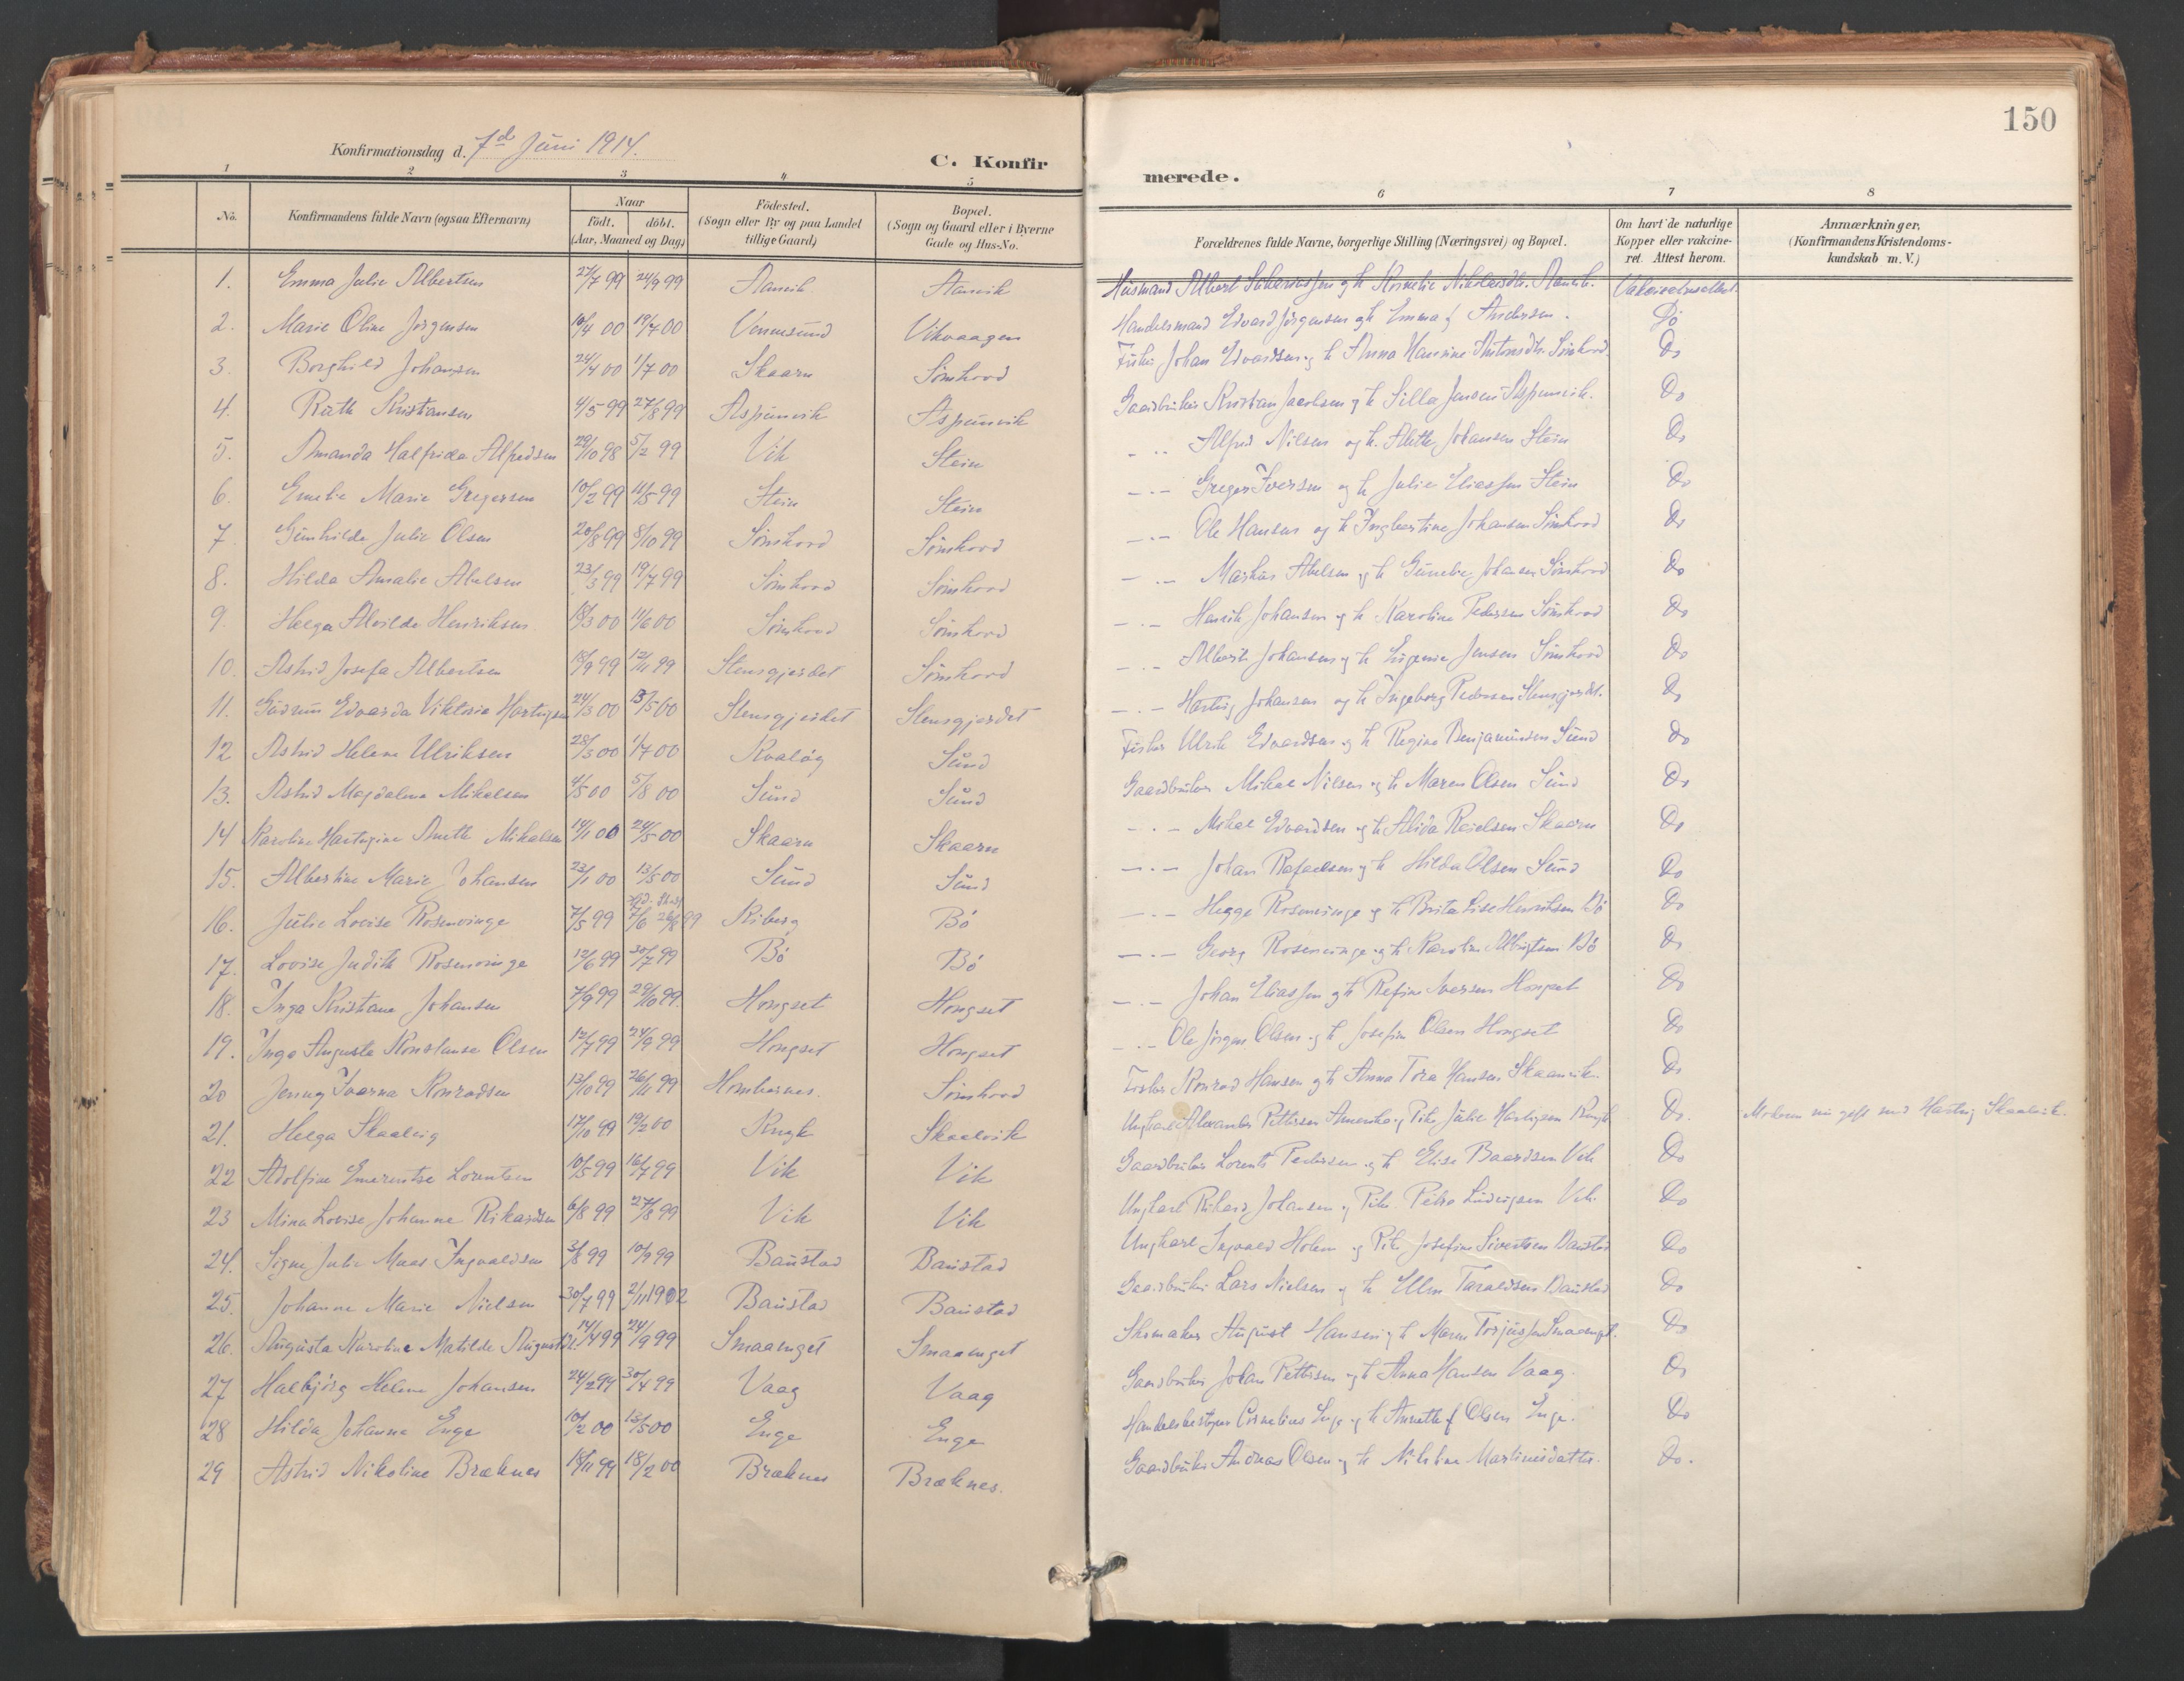 150
Konfirmationsdag d. 7de Juni 1914.
C. Konfirmerede.
1 2 3 4 5 6 7 8
No. Konfirmandens fulde Navn (ogsaa Efternavn) Naar födt. döbt. (Aar, Maaned og Dag) Födested. (Sogn eller By og paa Landet tillige Gaard) Bopæl. (Sogn og Gaard eller i Byerne Gade og Hus-No. Forældrenes fulde Navne, borgerlige Stilling (Næringsvei) og Bopæl. Om havt de naturlige Kopper eller vakcineret. Attest herom. Anmærkninger, (Konfirmandens Kristendomskundskab m. V.)
1. Emma Julie Albertsen 27/7 99 24/9 99 Husmand Albert
2. Marie Oline Jørgensen 10/4 00 19/7 00 Vennesund Vikvaagen Handelsmand Edvard Jørgensen og h Emma f Andersen. Do
3. Borghild Johansen 24/4 00 1/7 00 Skaarn Sömhovd Fisker Johan Edvardsen og h Anna Hansine Antonsdtr. Sömhovd Do
4. Ruth Kristiansen 4/5 99 27/8 99 Aspunvik Aspunvik Gaardbruker Kristian Jacobsen og h Silla Jensen Aspunvik. Do
5. Amanda Halfrida Alfredsen 29/10 98 5/2 99 Vik Stein - . - Alfred Nilsen og h. Alette Johansen Stein Do
6. Emelie Marie Gregersen 10/2 99 11/5 99 Stein Stein - . - Greger Iversen og h Julie Eliassen Stein Do
7. Gunhilda Julie Olsen 20/8 99 8/10 99 Sömhovd Sömhovd - . - Ole Hansen og h Ingbertine Johansen Sömhovd Do
8. Hilda Amalie Abelsen 23/3 99 19/7 99 Sömhovd Sömhovd - . - Markus Abelsen og h Gunelie Johansen Sömhovd Do
9. Helga Alvilde Henriksen 18/3 00 11/6 00 Sömhovd Sömhovd - . - Henrik Johansen og h Karoline Pedersen Sömhovd Do
10. Astrid Josefa Albertsen 18/9 99 12/11 99 Stensgjerdet Sömhovd - . - Albert Johansen og h Eugenie Jensen Sömhovd Do
11. Gudrun Edvarda Viktoria Hartvigsen 24/3 00 13/5 00 Stensgjerdet Stensgjerdet - . - Hartvig Johansen og h Ingeborg Pedersen Stensgjerdet. Do
12 Astrid Helene Ulriksen 28/3 00 1/7 00 Kvalög Sund Fisker Ulrik Edvardsen og h Regine Benjaminsen Sund Do
13. Astrid Magdalena Mikalsen 4/5 00 5/8 00 Sund Sund Gaardbruker Mikal Nilsen og h Maren Olsen Sund Do
14 Karoline Hartvgine Anette Mikalsen 14/1 00 24/5 00 Skaarn Skaarn - . - Mikal Edvardsen og h Alida Skaarn Do
15. Albertine Marie Johansen 23/1 00 13/5 00 Sund Sund - . - Johan Rafaelsen og h Hilda Olsen Sund Do
16. Julie Lovise Rosenvinge 7/5 99 7/6 26/8 99 Riberg Bö - . - Hegge Rosenvinge og h Brita Lise Henriksen Bö Do
17. Lovise Judith Rosenvinge 12/6 99 30/7 99 Bö Bö - . - Georg Rosenvinge og h Karoline Albrigtsen Bö Do
18. Inga Kristiane Johansen 7/9 99 29/10 99 Hongset Hongset - . - Johan Eliassen og h Regine Iversen Hongset Do
19. Inga Augusta Konstanse Olsen 12/7 99 24/9 99 Hongset Hongset - . - Ole Jörgen Olsen og h Josefine Olsen Hongset Do
20 Jenny Ivarna Konradsen 13/10 99 26/11 99 Sömhovd Fisker Konrad Hansen og h Anna Tora Hansen Skaanvik Do
21. Helga Skaalvig 17/10 99 19/2 00 Rugk Skaalvik Ungkarl Alexander Pettersen Amerika og Pike Julie Hartvigsen Do. Moderen nu gift med Hartvig Skaalvik.
22 Adolfine Emerentse Lorentsen 10/5 99 16/7 99 Vik Vik Gaardbruker Lorents Pedersen og h Elise Baardsen Vik Do
23 Mina Lovise Johanne Rikardsen 6/8 99 27/8 99 Vik Vik Ungkarl Rikard Johansen og Pike Petra Ludvigsen Vik. Do
24. Signe Julie Maas Ingvaldsen 3/8 99 10/9 99 Baustad Baustad Ungkarl Ingvald Holm og Pike Josefine Sivertsen Baustad Do
25. Johanne Marie Nielsen 30/7 99 2/11 1902 Baustad Baustad Gaardbruker Lars Nielsen og h Ellen Taraldsen Baustad Do
26. Augusta Karoline Matilde Augustsen 14/4 99 24/9 99 Smaaenget Smaaenget Skomaker August Hansen og h Maren Torjussen Smaaenget. Do
27 Halbjörg Helene Johansen 24/2 99 30/4 99 Vaag Vaag Gaardbruker Johan Pettersen og h Anna Hansen Vaag. Do
28 Hilda Johanna Enge 10/2 00 13/5 00 Enge Enge Handelsbestyrer Cornelius Enge og h Anneth f Olsen Enge. Do
29 Astrid Nikoline Bræknes 18/11 99 18/2 00 Bræknes Bræknes. Gaardbruker Andreas Olsen og h Nikoline Martinusdatter. Do.